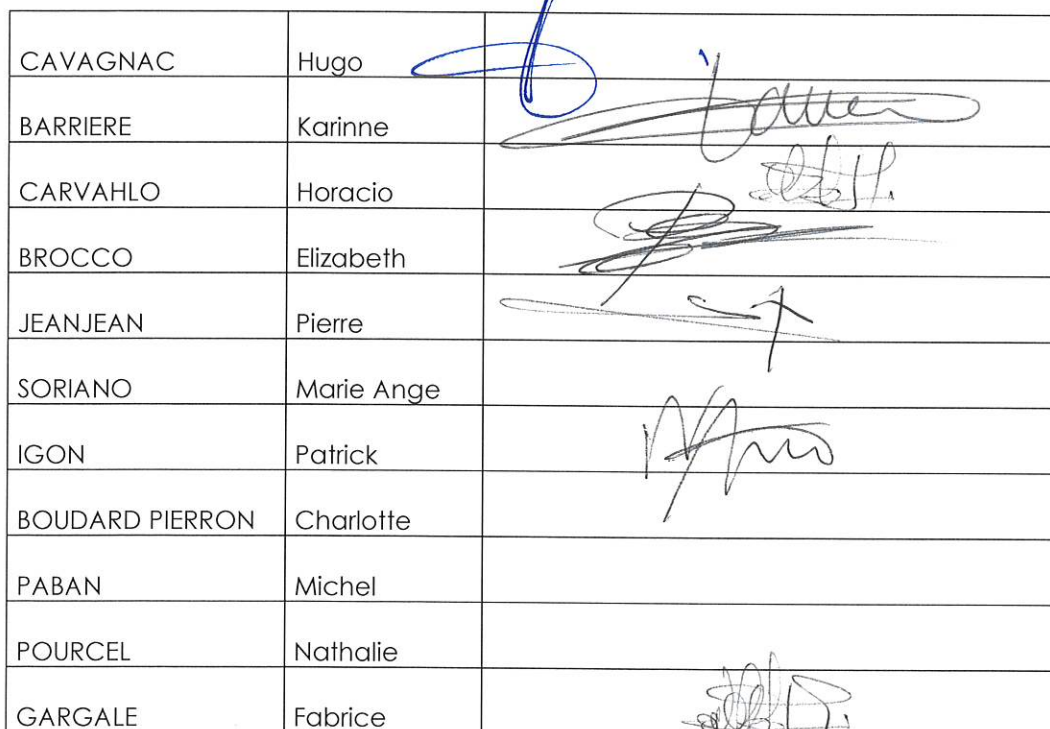 CAVAGNAC Hugo
BARRIERE Karinne
CARVAHLO Horacio
BROCCO Elizabeth
JEANJEAN Pierre
SORIANO Marie Ange
IGON Patrick
BOUDARD PIERRON Charlotte
PABAN Michel
POURCEL Nathalie
GARGALE Fabrice